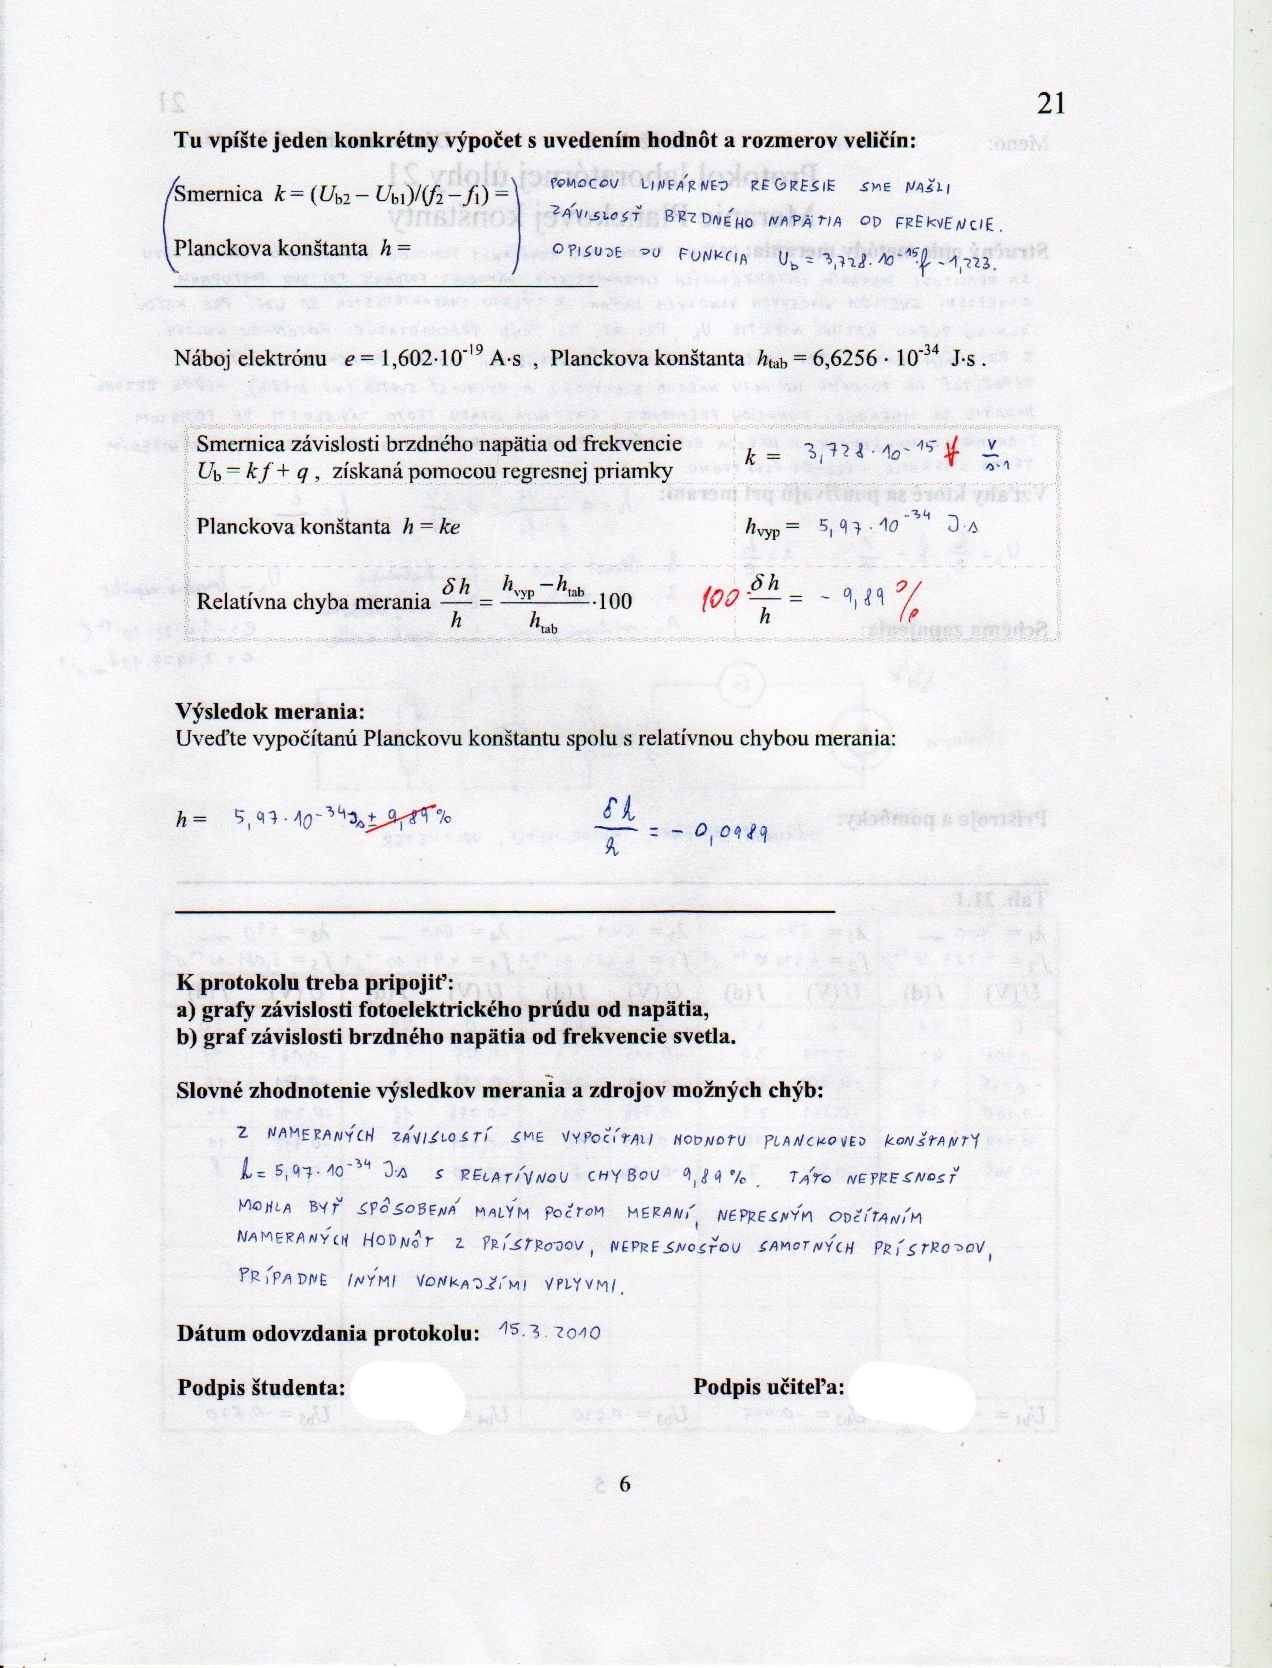 21
Tu vpíšte jeden konkrétny výpočet s uvedením hodnôt a rozmerov veličín:
Smernica k = (Ub2 – Ub1)/(f2 – f1) =
Planckova konštanta h =
POMOCOU LINEÁRNEJ REGRESIE SME NAŠLI
ZÁVISLOSŤ BRZDNÉHO NAPÄTIA OD FREKVENCIE.
OPISUJE JU FUNKCIA Ub = 3,728·10^-15·f - 1,223.
Náboj elektrónu e = 1,602·10^-19 A·s , Planckova konštanta htab = 6,6256 · 10^-34 J·s .
Smernica závislosti brzdného napätia od frekvencie
Ub = k f + q , získaná pomocou regresnej priamky
k = 3,728·10^-15 V/s-1
Planckova konštanta h = ke
hvyp = 5,97·10^-34 J·s
Relatívna chyba merania δh/h = (hvyp – htab)/htab ·100
100·δh/h = - 9,89 %
Výsledok merania:
Uveďte vypočítanú Planckovu konštantu spolu s relatívnou chybou merania:
h = 5,97·10^-34 Js ± 9,89 % δh/h = - 0,0989
K protokolu treba pripojiť:
a) grafy závislosti fotoelektrického prúdu od napätia,
b) graf závislosti brzdného napätia od frekvencie svetla.
Slovné zhodnotenie výsledkov merania a zdrojov možných chýb:
Z NAMERANÝCH ZÁVISLOSTÍ SME VYPOČÍTALI HODNOTU PLANCKOVEJ KONŠTANTY
h = 5,97·10^-34 J·s S RELATÍVNOU CHYBOU 9,89 %. TÁTO NEPRESNOSŤ
MOHLA BYŤ SPÔSOBENÁ MALÝM POČTOM MERANÍ, NEPRESNÝM ODČÍTANÍM
NAMERANÝCH HODNÔT Z PRÍSTROJOV, NEPRESNOSŤOU SAMOTNÝCH PRÍSTROJOV,
PRÍPADNE INÝMI VONKAJŠÍMI VPLYVMI.
Dátum odovzdania protokolu: 15.3.2010
Podpis študenta: Podpis učiteľa:
6